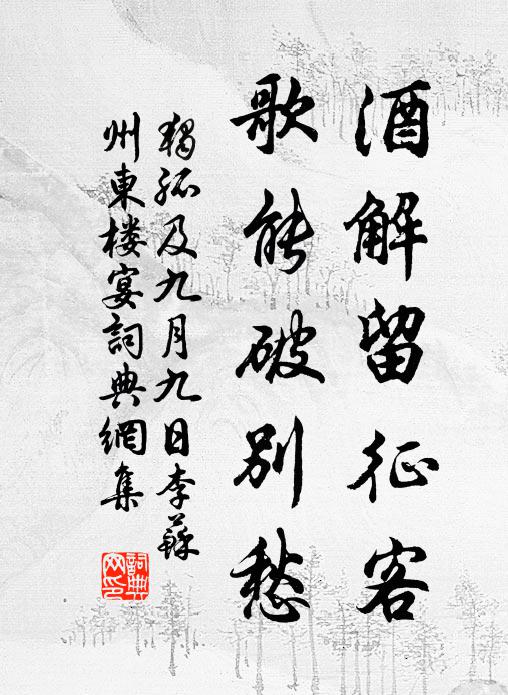 酒解留征客
歌能破別愁
獨孤及九月九日李蘇
州東楼宴詞典網集
詞典
网印